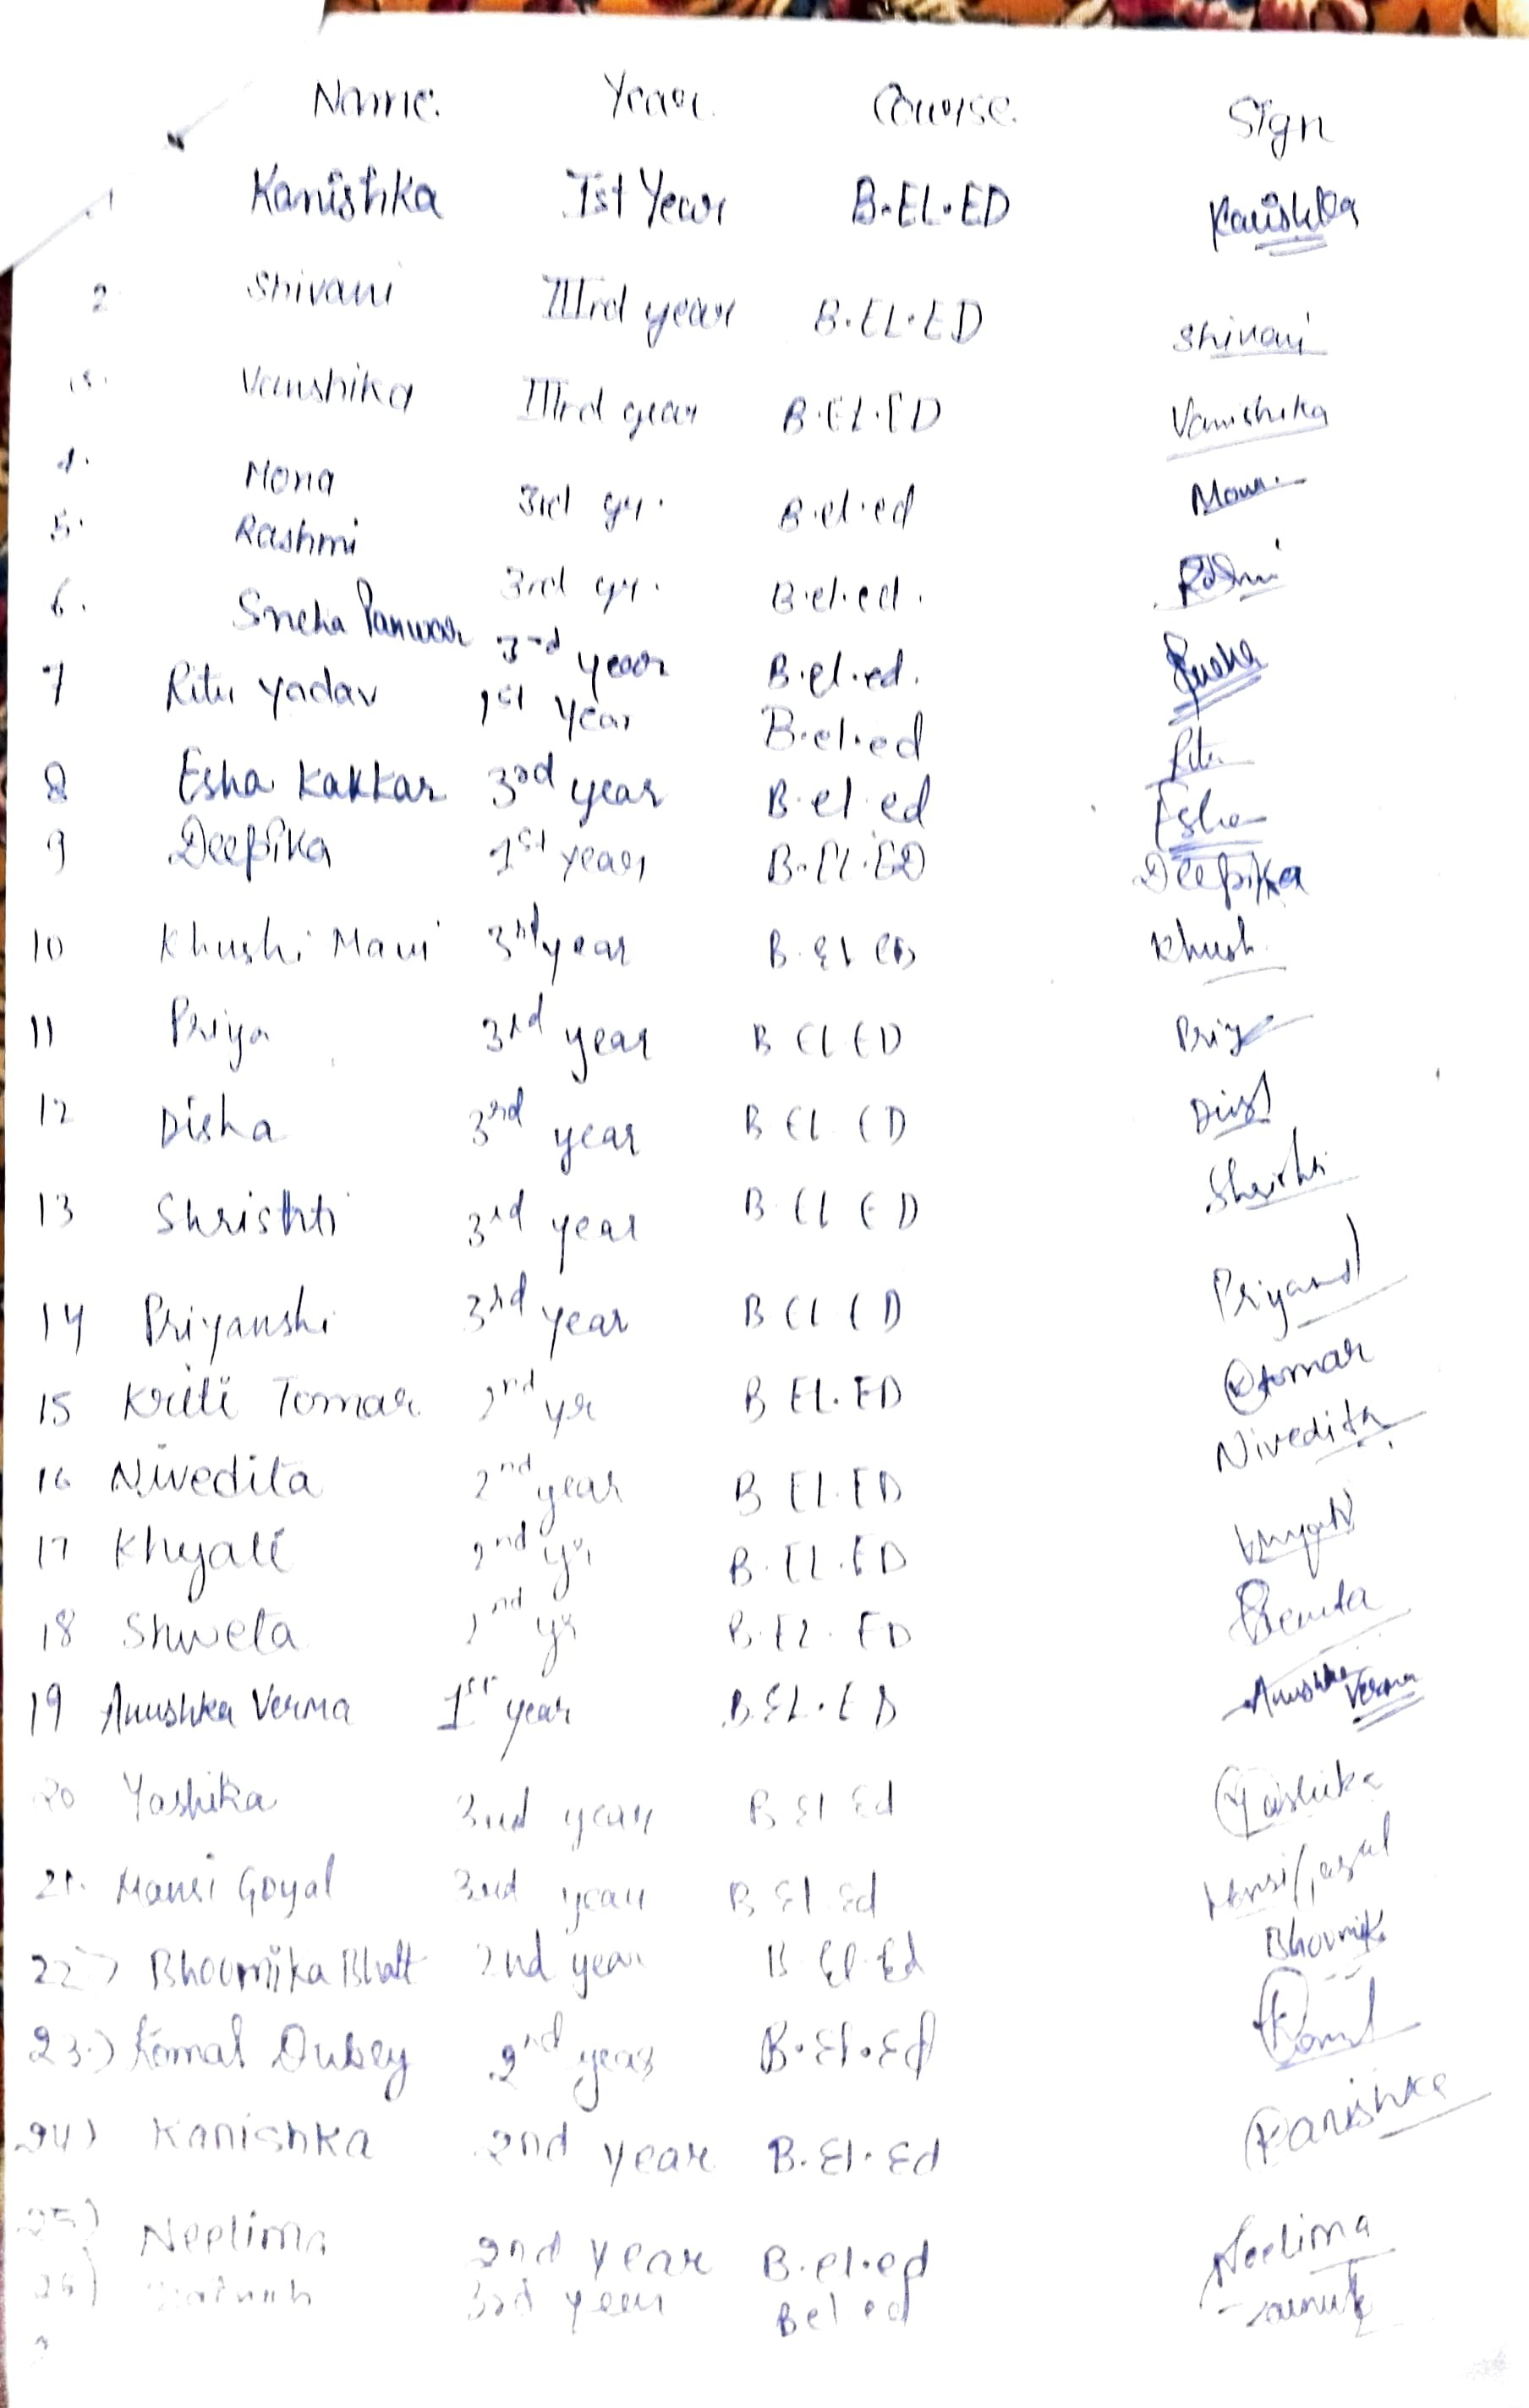 Name. Year. Course. Sign
1 Kanishka Ist Year B.EL.ED Kanishka
2 Shivani IIIrd year B.EL.ED Shivani
Vanshika IIIrd year B.EL.ED Vanishika
4. Mona 3rd yr. B.el.ed Mona
5. Rashmi 3rd yr. B.el.ed. Rashmi
6. Sneha Panwar 3rd year B.el.ed. Sneha
7 Ritu Yadav 1st Year B.el.ed Ritu
8 Esha Kakkar 3rd year B.el.ed Esha
9 Deepika 1st year B.El.ED Deepika
10 Khushi Mavi 3rd year B.El ED Khushi
11 Priya 3rd year B El ED Priya
12 Disha 3rd year B El ED
13 Shrishti 3rd year B El ED Shrishti
14 Priyanshi 3rd year B El ED
15 Kriti Tomar 2nd yr B EL.ED
16 Nivedita 2nd year B El.ED Nivedita
17 Khyati 2nd yr B.El.ED Khyati
18 Shweta 2nd yr B.El.ED Shweta
19 Anushka Verma 1st year B.EL.ED Anushka Verma
20 Yashika 3rd year B El Ed Yashika
21. Mansi Goyal 3rd year B El Ed Mansi Goyal
22) Bhoomika Bhatt 2nd year B El.Ed
23.) Komal Dubey 2nd year B.El.Ed Komal
24) Kanishka 2nd year B.El.Ed Kanishka
25) Neelima 2nd Year B.el.ed Neelima
26) 3rd year Bel ed